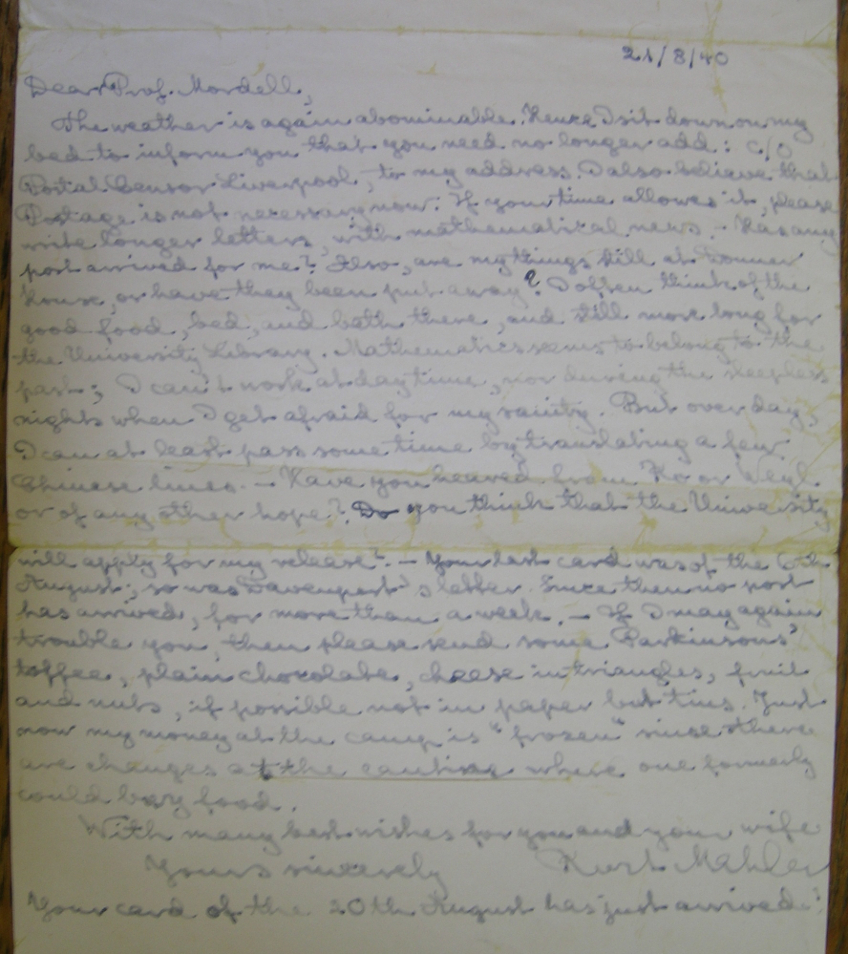 21/8/40
Dear Prof. Mordell,
The weather is again abominable. Hence I sit down on my
bed to inform you that you need no longer add: c/o
Postal Censor Liverpool, to my address. I also believe that
Postage is not necessary now. If your time allowes it, please
write longer letters, with mathematical news. - Has any
post arrived for me? Also, are my things still at Donner
House, or have they been put away? I often think of the
good food, bed, and bath there, and still more long for
the University Library. Mathematics seems to belong to the
past; I can't work at day time, nor during the sleepless
nights when I get afraid for my sanity. But over day,
I can at least pass some time by translating a few
Chinese lines. - Have you heared from Ko or Weyl
or of any other hope? Do you think that the University
will apply for my release? - Your last card was of the 6th
August; so was Davenport's letter. Since then no post
has arrived, for more than a week. - If I may again
trouble you, then please send some Parkinsons'
toffee, plain chocolate, cheese in triangles, fruit
and nuts, if possible not in paper but tins. Just
now my money at the camp is "frozen" since there
are changes at the cantine where one formerly
could buy food.
With many best wishes for you and your wife
Yours sincerely Kurt Mahler
Your card of the 20th August has just arrived.